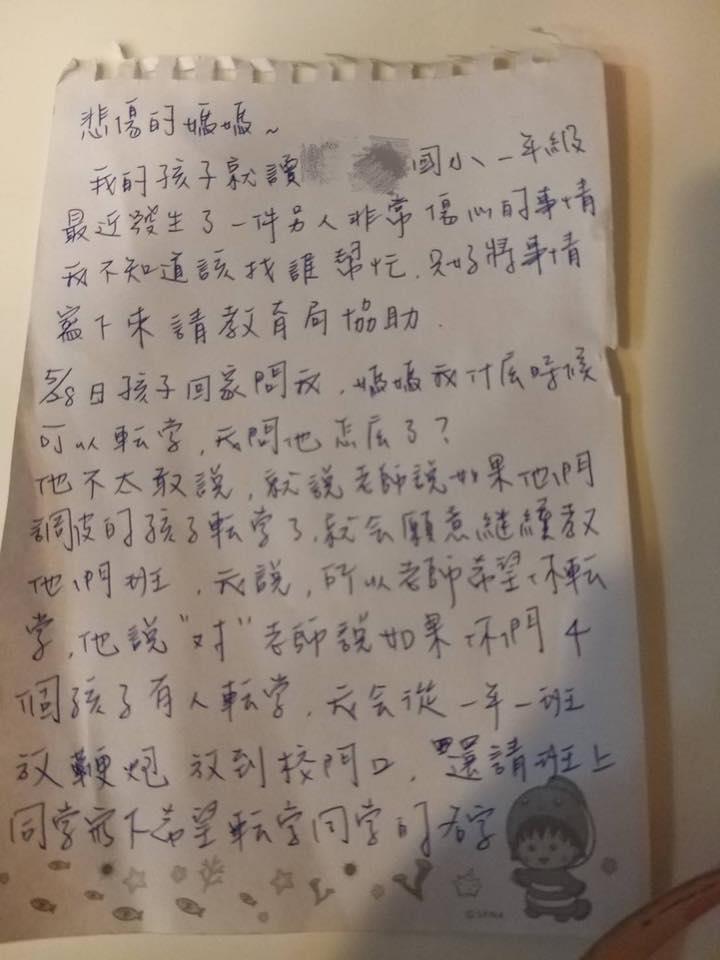 悲傷的媽媽~
我的孩子就讀 國小、一年級
最近發生了一件另人非常傷心的事情
我不知道該找誰幫忙，只好將事情
寫下來請教育局協助.
5/28日孩子回家問我，媽媽我什広時候
可以転学，我問他怎広了？
他不太敢說，就說老師說如果他們
調皮的孩子転学了，就会願意継續教
他們班，我說，所以老師希望你転
学，他說"对"老師說如果你們4
個孩子有人転学，我会從一年一班
放鞭炮放到校門口，還請班上
同学寫下希望転学同学的名字